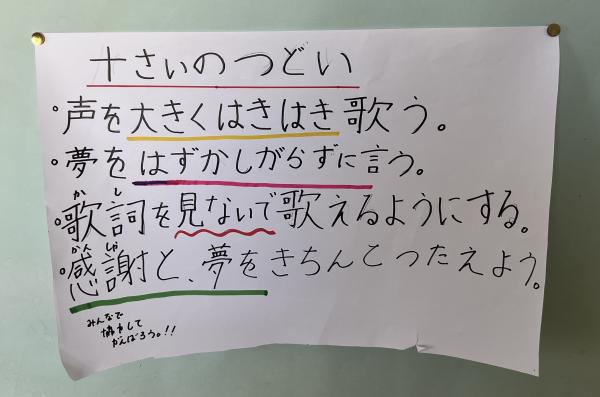 十さいのつどい
・声を大きくはきはき歌う。
・夢をはずかしがらずに言う。
かし
・歌詞を見ないで歌えるようにする。
かんしゃ
・感謝と、夢をきちんとつたえよう。
みんなで
協力して
がんばろう。!!